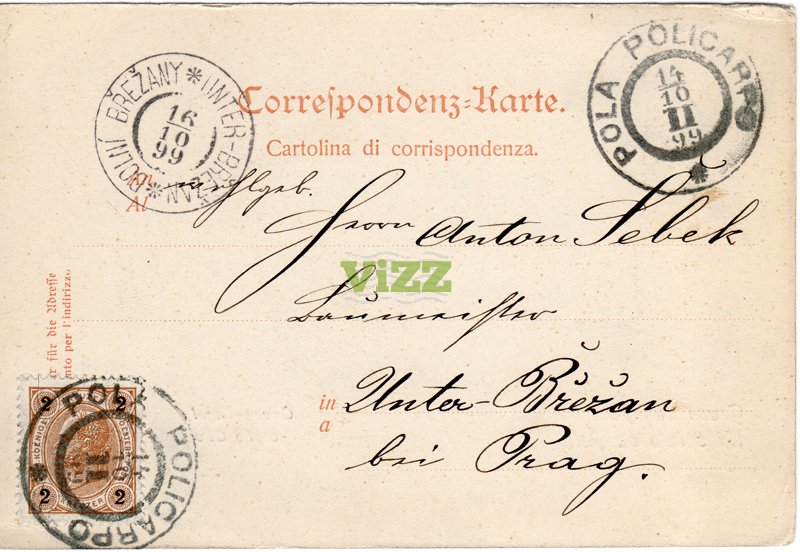 Correspondenz-Karte.
Cartolina di corrispondenza.
POLA POLICARPO *
14
10
II
99
DOLNÍ BŘEŽANY * UNTER-BŘEŽAN *
16
10
99
An
Al
Herrn Anton Šebek
Baumeister
in
a
Unter-Břežan
bei Prag.
ViZZ
für die Adresse
per l'indirizzo
POLA POLICARPO *
14
10
II
2 2
2 2